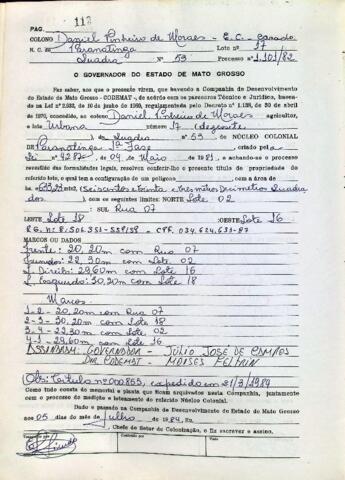 PAG. 112
COLONO Daniel Pinheiro de Moraes - E.C. - Casado
N. C. de Paranatinga Lote nº 17
Quadra Nº 59 Processo nº 1.101/82
O GOVERNADOR DO ESTADO DE MATO GROSSO
Faz saber, aos que o presente virem, que havendo a Companhia de Desenvolvimento
do Estado de Mato Grosso - CODEMAT -, de acôrdo com os pareceres Técnico e Jurídico, basea-
do na Lei nº de 10 de junho de regulamentada pelo Decreto nº 1.138, de 30 de abril
de 1970, concedido, ao colono Daniel Pinheiro de Moraes agricultor,
o lote Urbano nº 17 (dezessete)
da Quadra nº 59 do NÚCLEO COLONIAL
de Paranatinga 1ª Fase criado pela
Lei nº 4287 de, 04 de Maio de 1981, e achando-se o processo
revestido das formalidades legais, resolvem conferir-lhe o presente título de propriedade do
referido lote, o qual tem a configuração de um polígono com a área de
m2, (Seiscentos e trinta e tres metros Decimetros Quadra
dos), com os seguintes limites: NORTE Lote 02
: SUL Rua 07
LESTE Lote 18 :OESTE Lote 16
MARCOS OU DADOS
Frente: 20,20m com Rua 07
Fundos: 22,30m com Lote 02
L. Direito: 29,60m com Lote 16
L. Esquerdo: 30,20m com Lote 18
Marcos
1-2 - 20,20m com Rua 07
2-3 - 30,20m com Lote 18
3-4 - 22,30m com Lote 02
4-1 - 29,60m com Lote 16
ASSINARAM: GOVERNADOR - JULIO JOSÉ DE CAMPOS
DIR CODEMAT - MOISES FELTRIN
Obs: Titulo nº 000855, expedido em 21/3/1984
Como tudo consta do memorial e planta que ficam arquivados nesta Companhia, juntamente
com o processo de medição e loteamento do referido Núcleo Colonial.
Dado e passado na Companhia de Desenvolvimento do Estado de Mato Grosso
aos 05 dias do mês de Julho de 1984, Eu,
, Chefe do Setor de Colonização, o fiz escrever e assino.